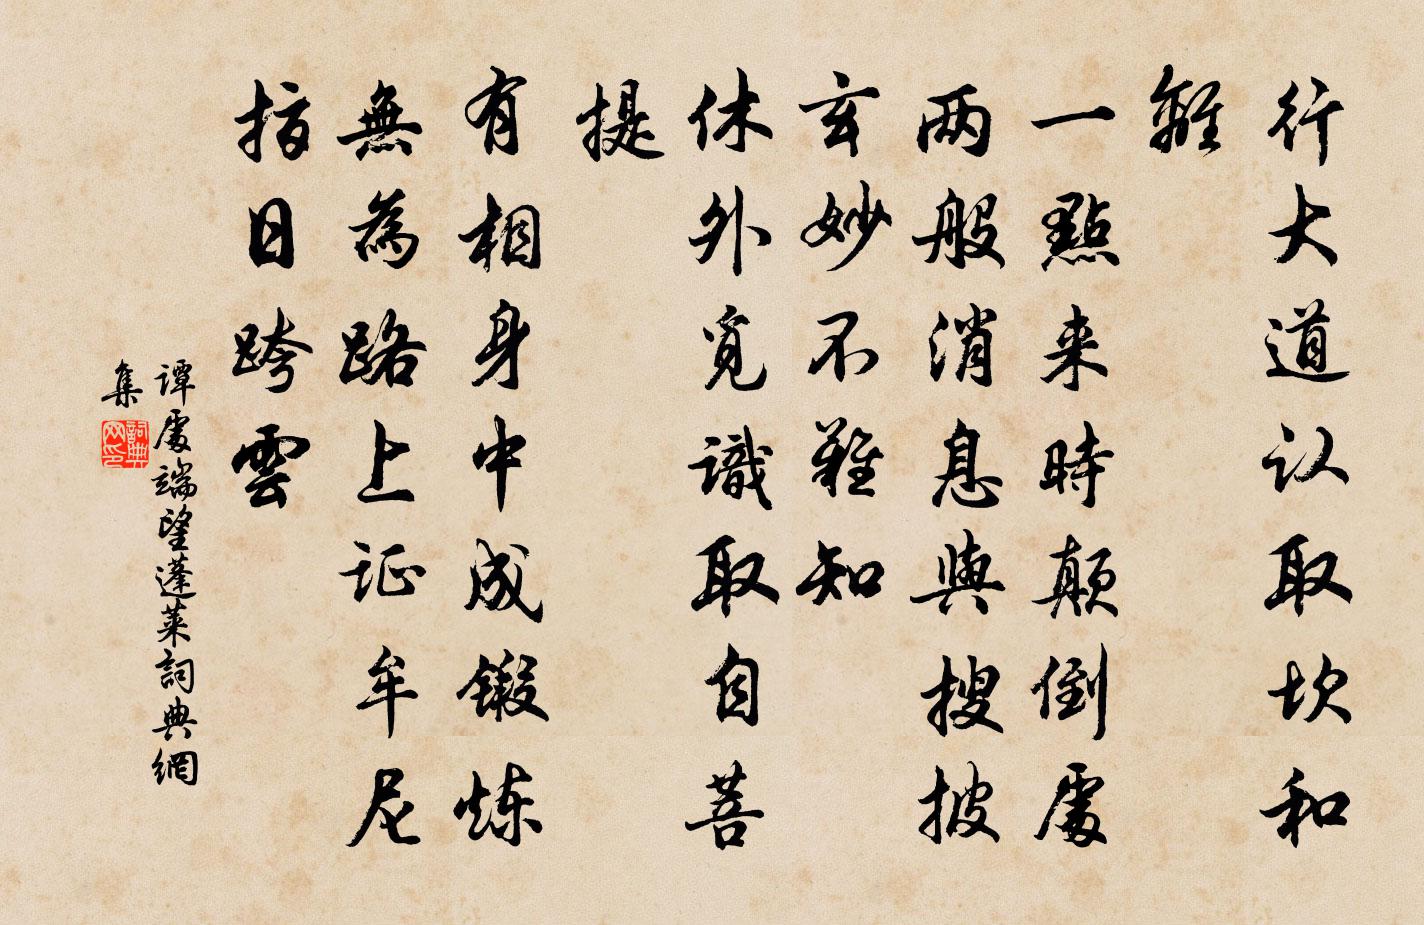 行大道认取坎和
離
一點来時颠倒處
两般消息與搜披
玄妙不難知
休外覓識取自菩
提
有相身中成鍛炼
無為路上证牟尼
指日跨雲
譚處端望蓬莱詞典網
集
詞典网印